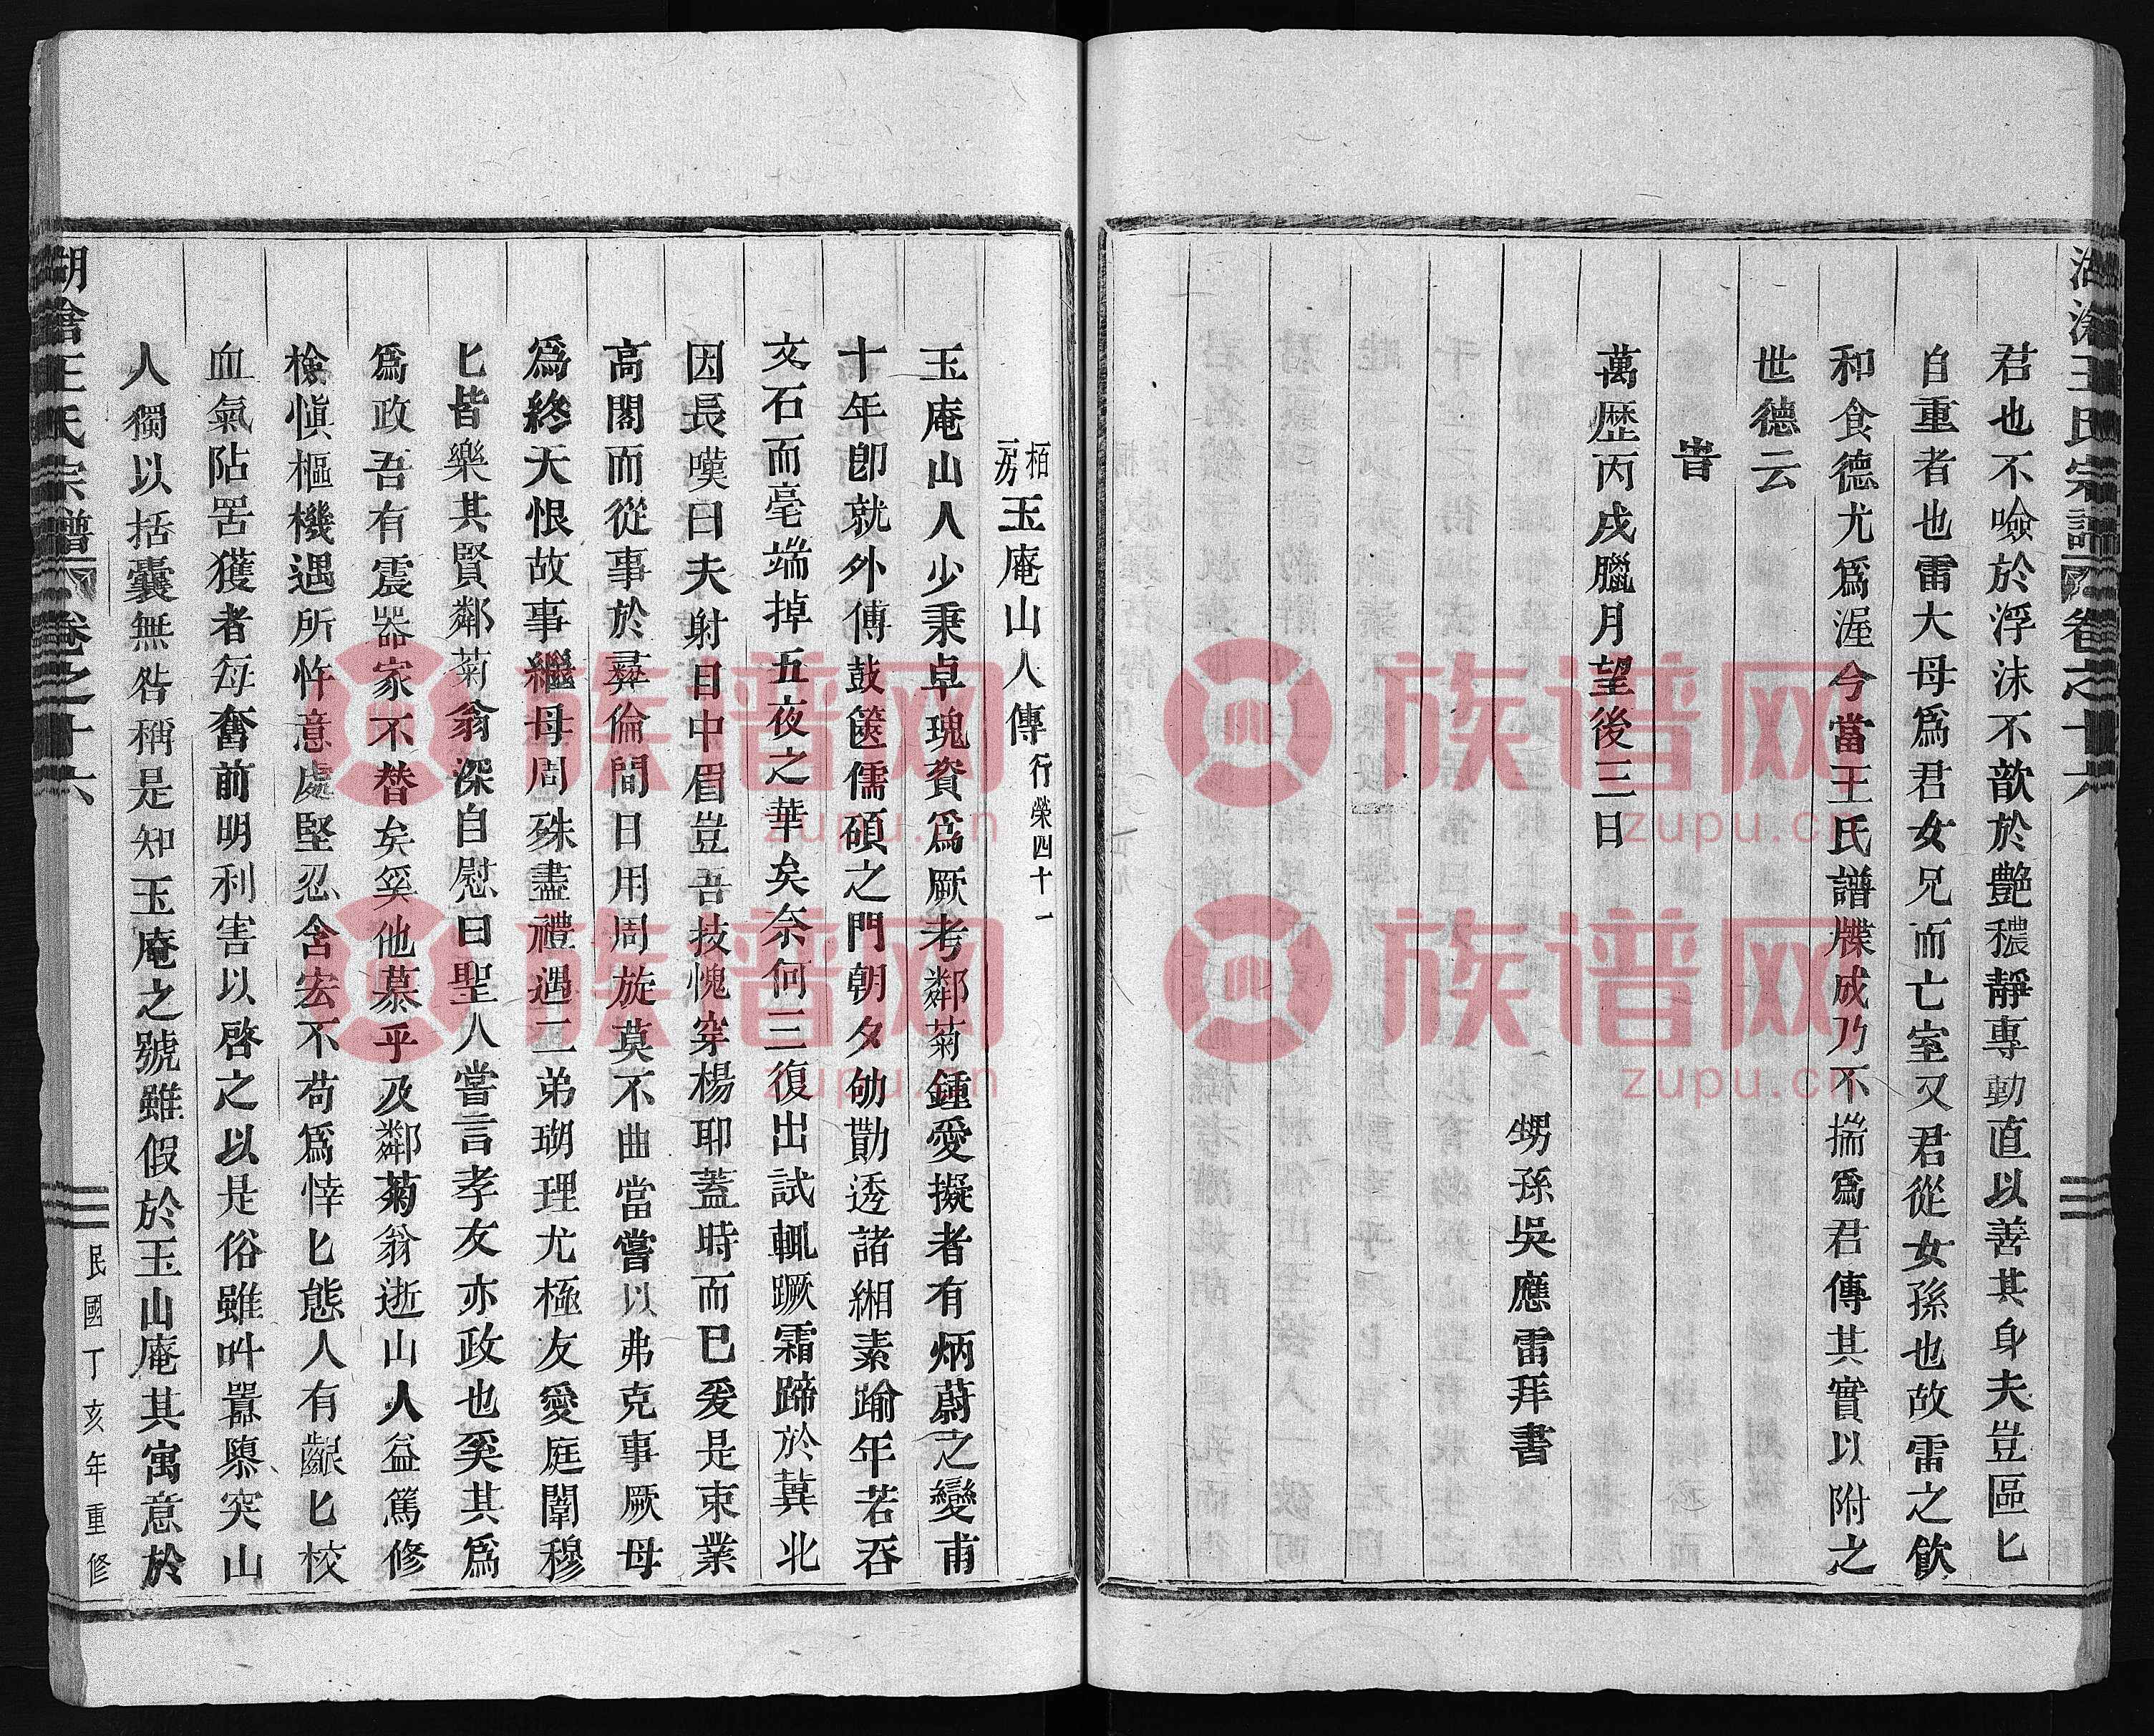 湖滄王氏宗譜 卷之十六
君也不噞於浮沫不歆於艶穠靜專動直以善其身夫豈區匕
自重者也雷大母爲君女兄而亡室又君從女孫也故雷之飲
和食德尤爲渥今當王氏譜牒成乃不揣爲君傳其實以附之
世德云
旹
萬歷丙戌臘月望後三日
甥孫吳應雷拜書
栢一房玉庵山人傳行榮四十一
玉庵山人少秉卓瑰資爲厥考鄰菊鍾愛擬者有炳蔚之變甫
十年卽就外傅鼓篋儒碩之門朝夕劬勩透諸緗素踰年若吞
文石而毫端掉五夜之華矣奈何三復出試輒蹶霜蹄於冀北
因長嘆曰夫射目中眉豈吾技愧穿楊耶蓋時而已爰是束業
高閣而從事於彝倫間日用周旋莫不曲當嘗以弗克事厥母
爲終天恨故事繼母周殊盡禮遇二弟瑚理尤極友愛庭闈穆
匕皆樂其賢鄰菊翁深自慰曰聖人嘗言孝友亦政也奚其爲
爲政吾有震器家不替矣奚他慕乎及鄰菊翁逝山人益篤修
檢愼樞機遇所忤意處堅忍含宏不苟爲悻匕態人有齦匕校
血氣阽罟獲者每奮前明利害以啓之以是俗雖叫囂隳突山
人獨以括囊無咎稱是知玉庵之號雖假於玉山庵其寓意於
湖滄王氏宗譜 卷之十六
民國丁亥年重修
族谱网
zupu.cn
族谱网
zupu.cn
族谱网
zupu.cn
族谱网
zupu.cn